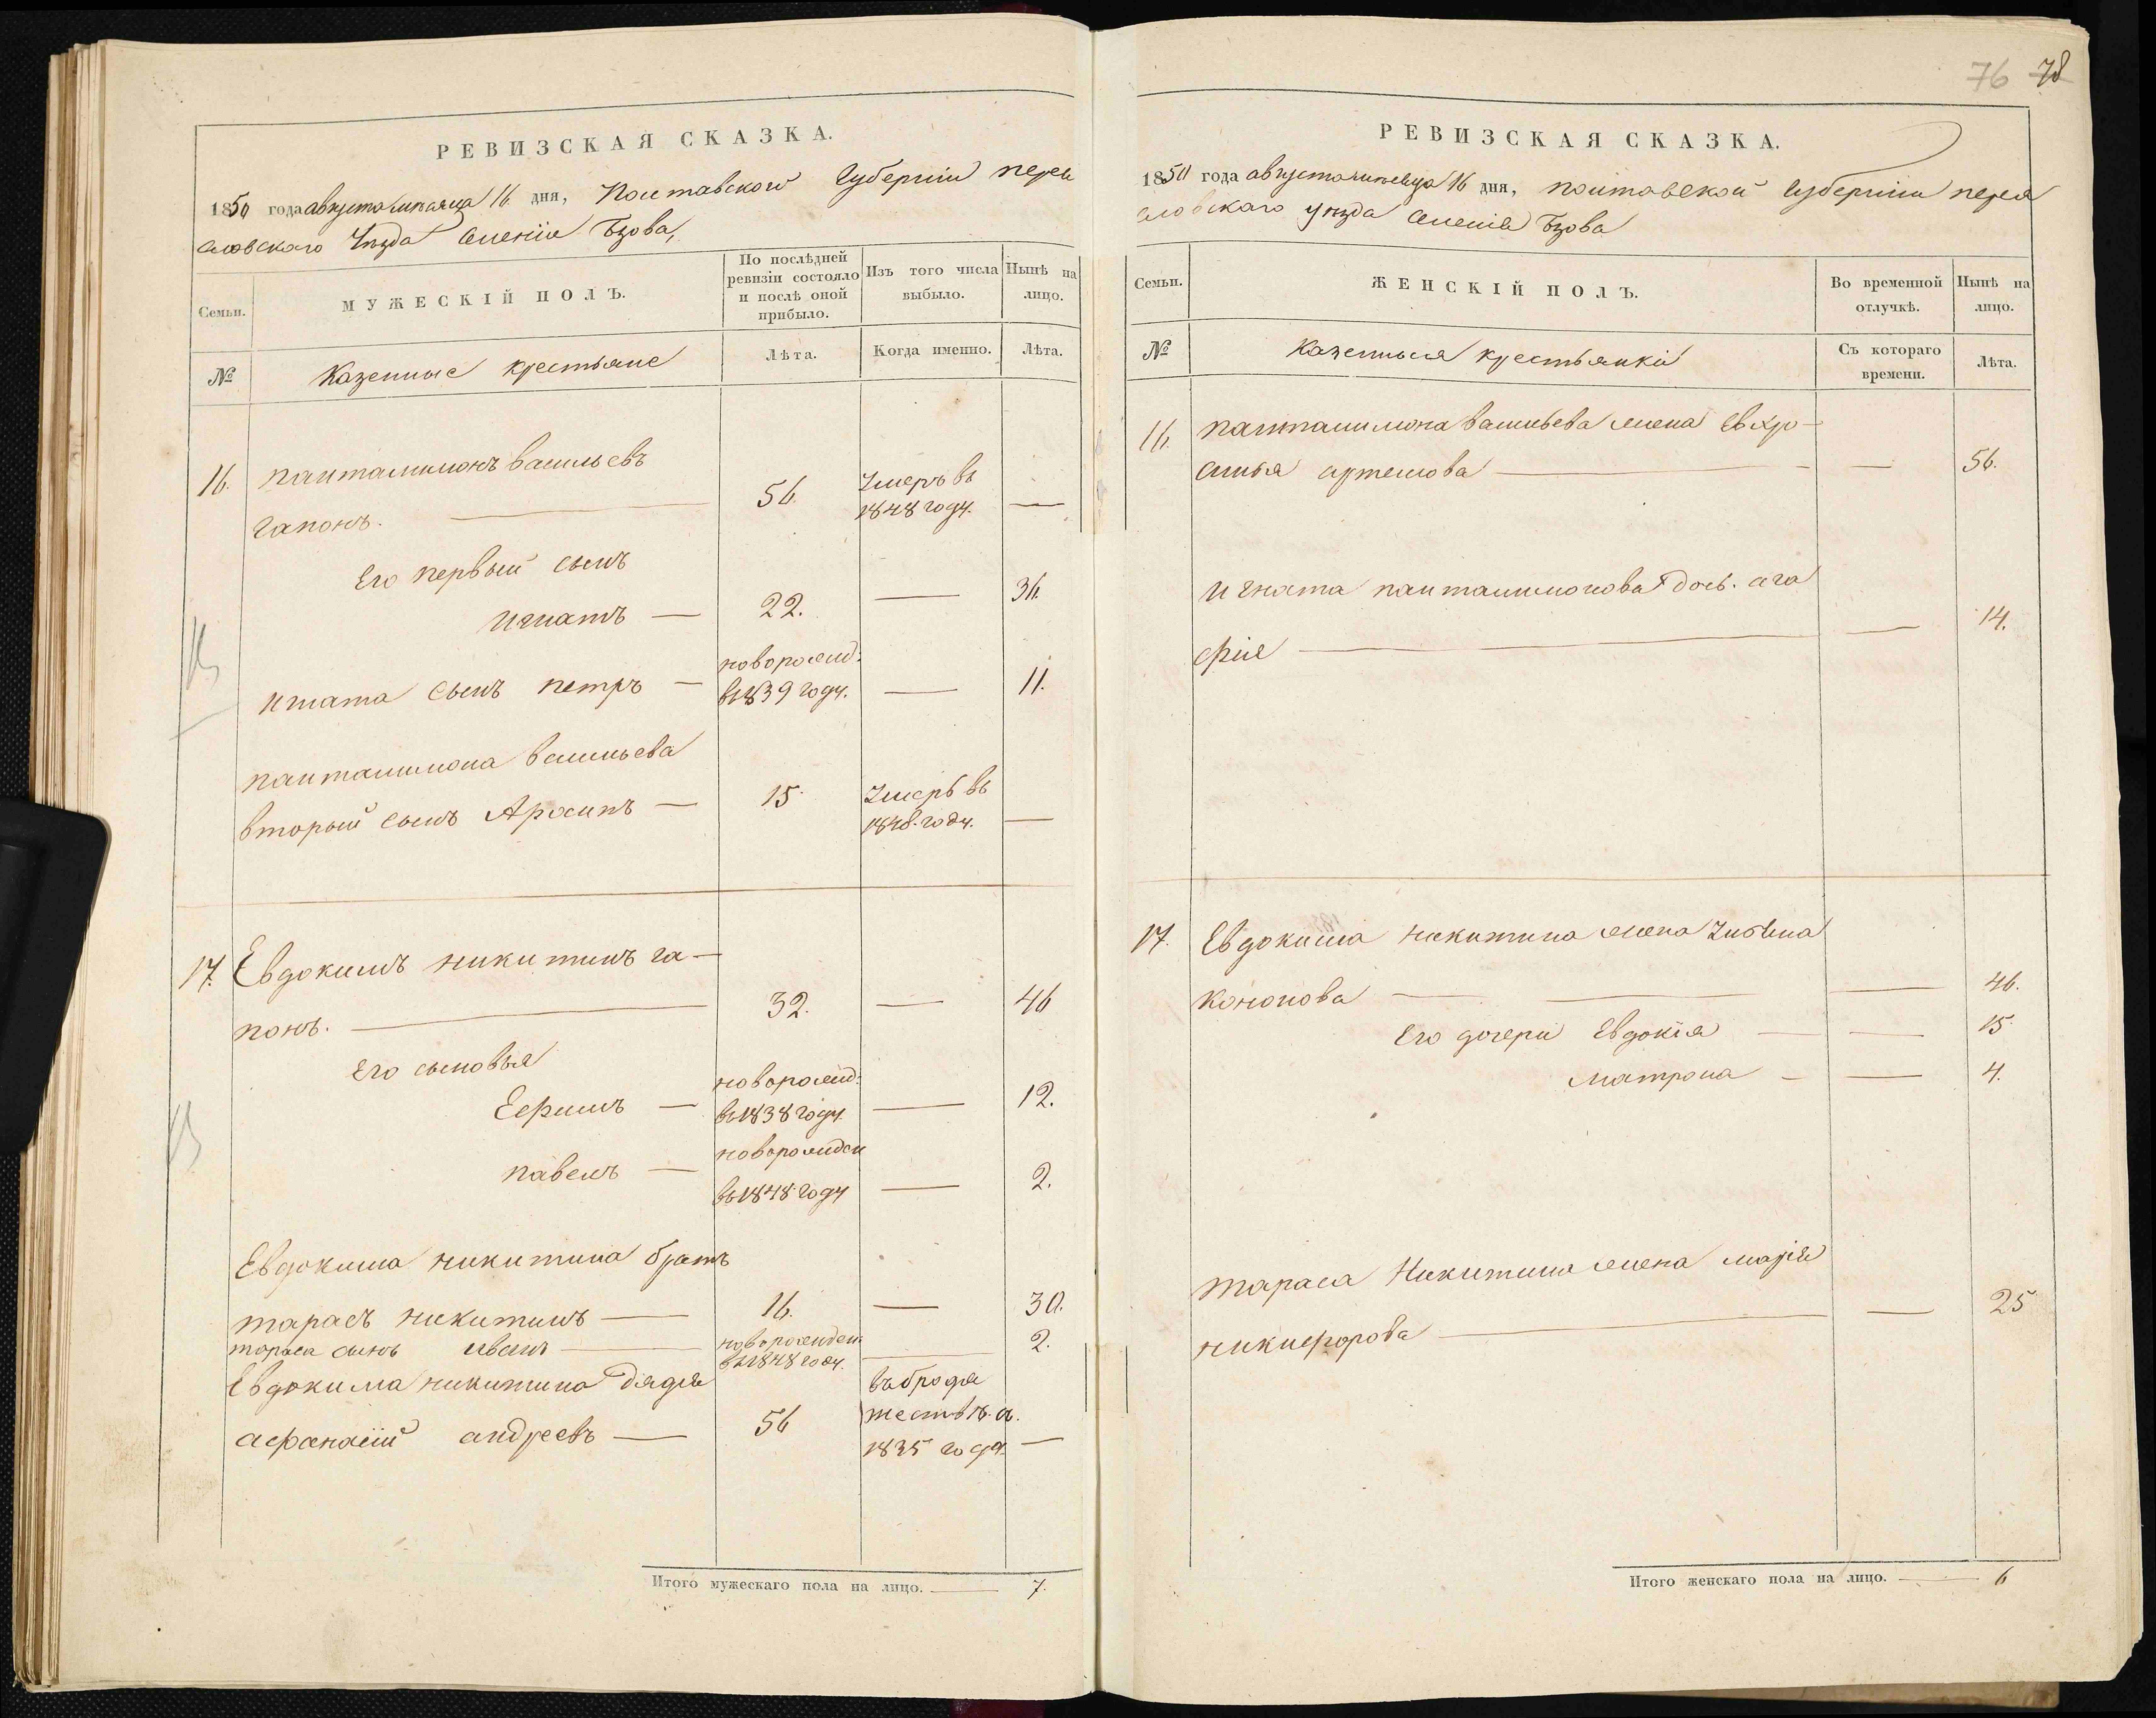 РЕВИЗСКАЯ СКАЗКА.
1850 года августа месяца 16 дня, Полтавской Губернии перея
словского Уезда Селения Бзова,
Семьи.
МУЖЕСКІЙ ПОЛЪ.
По послѣдней ревизіи состояло и послѣ оной прибыло.
Изъ того числа выбыло.
Нынѣ на лицо.
№
Казенные крестьяне
Лѣта.
Когда именно.
Лѣта.
16. пантелимонъ васильевъ
гапонъ. — 56. Умеръ въ 1848 году. —
Его первый сынъ
игнатъ — 22. — 36.
игната сынъ петръ — новорожд: въ 1839 году. — 11.
панталимона васильева
вторый сынъ — 15. Умеръ въ 1848 году. —
17. Евдокимъ никитинъ га-
понъ. — 32. — 46
Его сыновья
Ефимъ — новорожд: въ 1838 году — 12.
павелъ — новорожден въ 1848 году — 2.
Евдокима никитина братъ
тарасъ никитинъ — 16. — 30.
тараса сынъ иванъ — новорожден: въ 1848 году. — 2.
Евдокима никитина дядя
афанасій андреевъ — 56 въ бродя жествѣ съ. 1835 года —
Итого мужескаго пола на лицо. — 7.
76 78
РЕВИЗСКАЯ СКАЗКА.
1850 года августа месяца 16 дня, полтавской Губернии перея
словскаго уезда Селения Бзова
Семьи.
ЖЕНСКІЙ ПОЛЪ.
Во временной отлучкѣ.
Нынѣ на лицо.
№
Казенныя крестьянки
Съ котораго времени.
Лѣта.
16. панталимона васильева жена Евхро-
синья артемова — — 56.
игната панталимонова дочь. ага
фия — — 14.
17. Евдокима никитина жена Улияна
кононова — — 46.
Его дочери Евдокія — — 15.
матрона — — 4.
тараса Никитина жена марія
никифорова — — 25
Итого женскаго пола на лицо. — 6